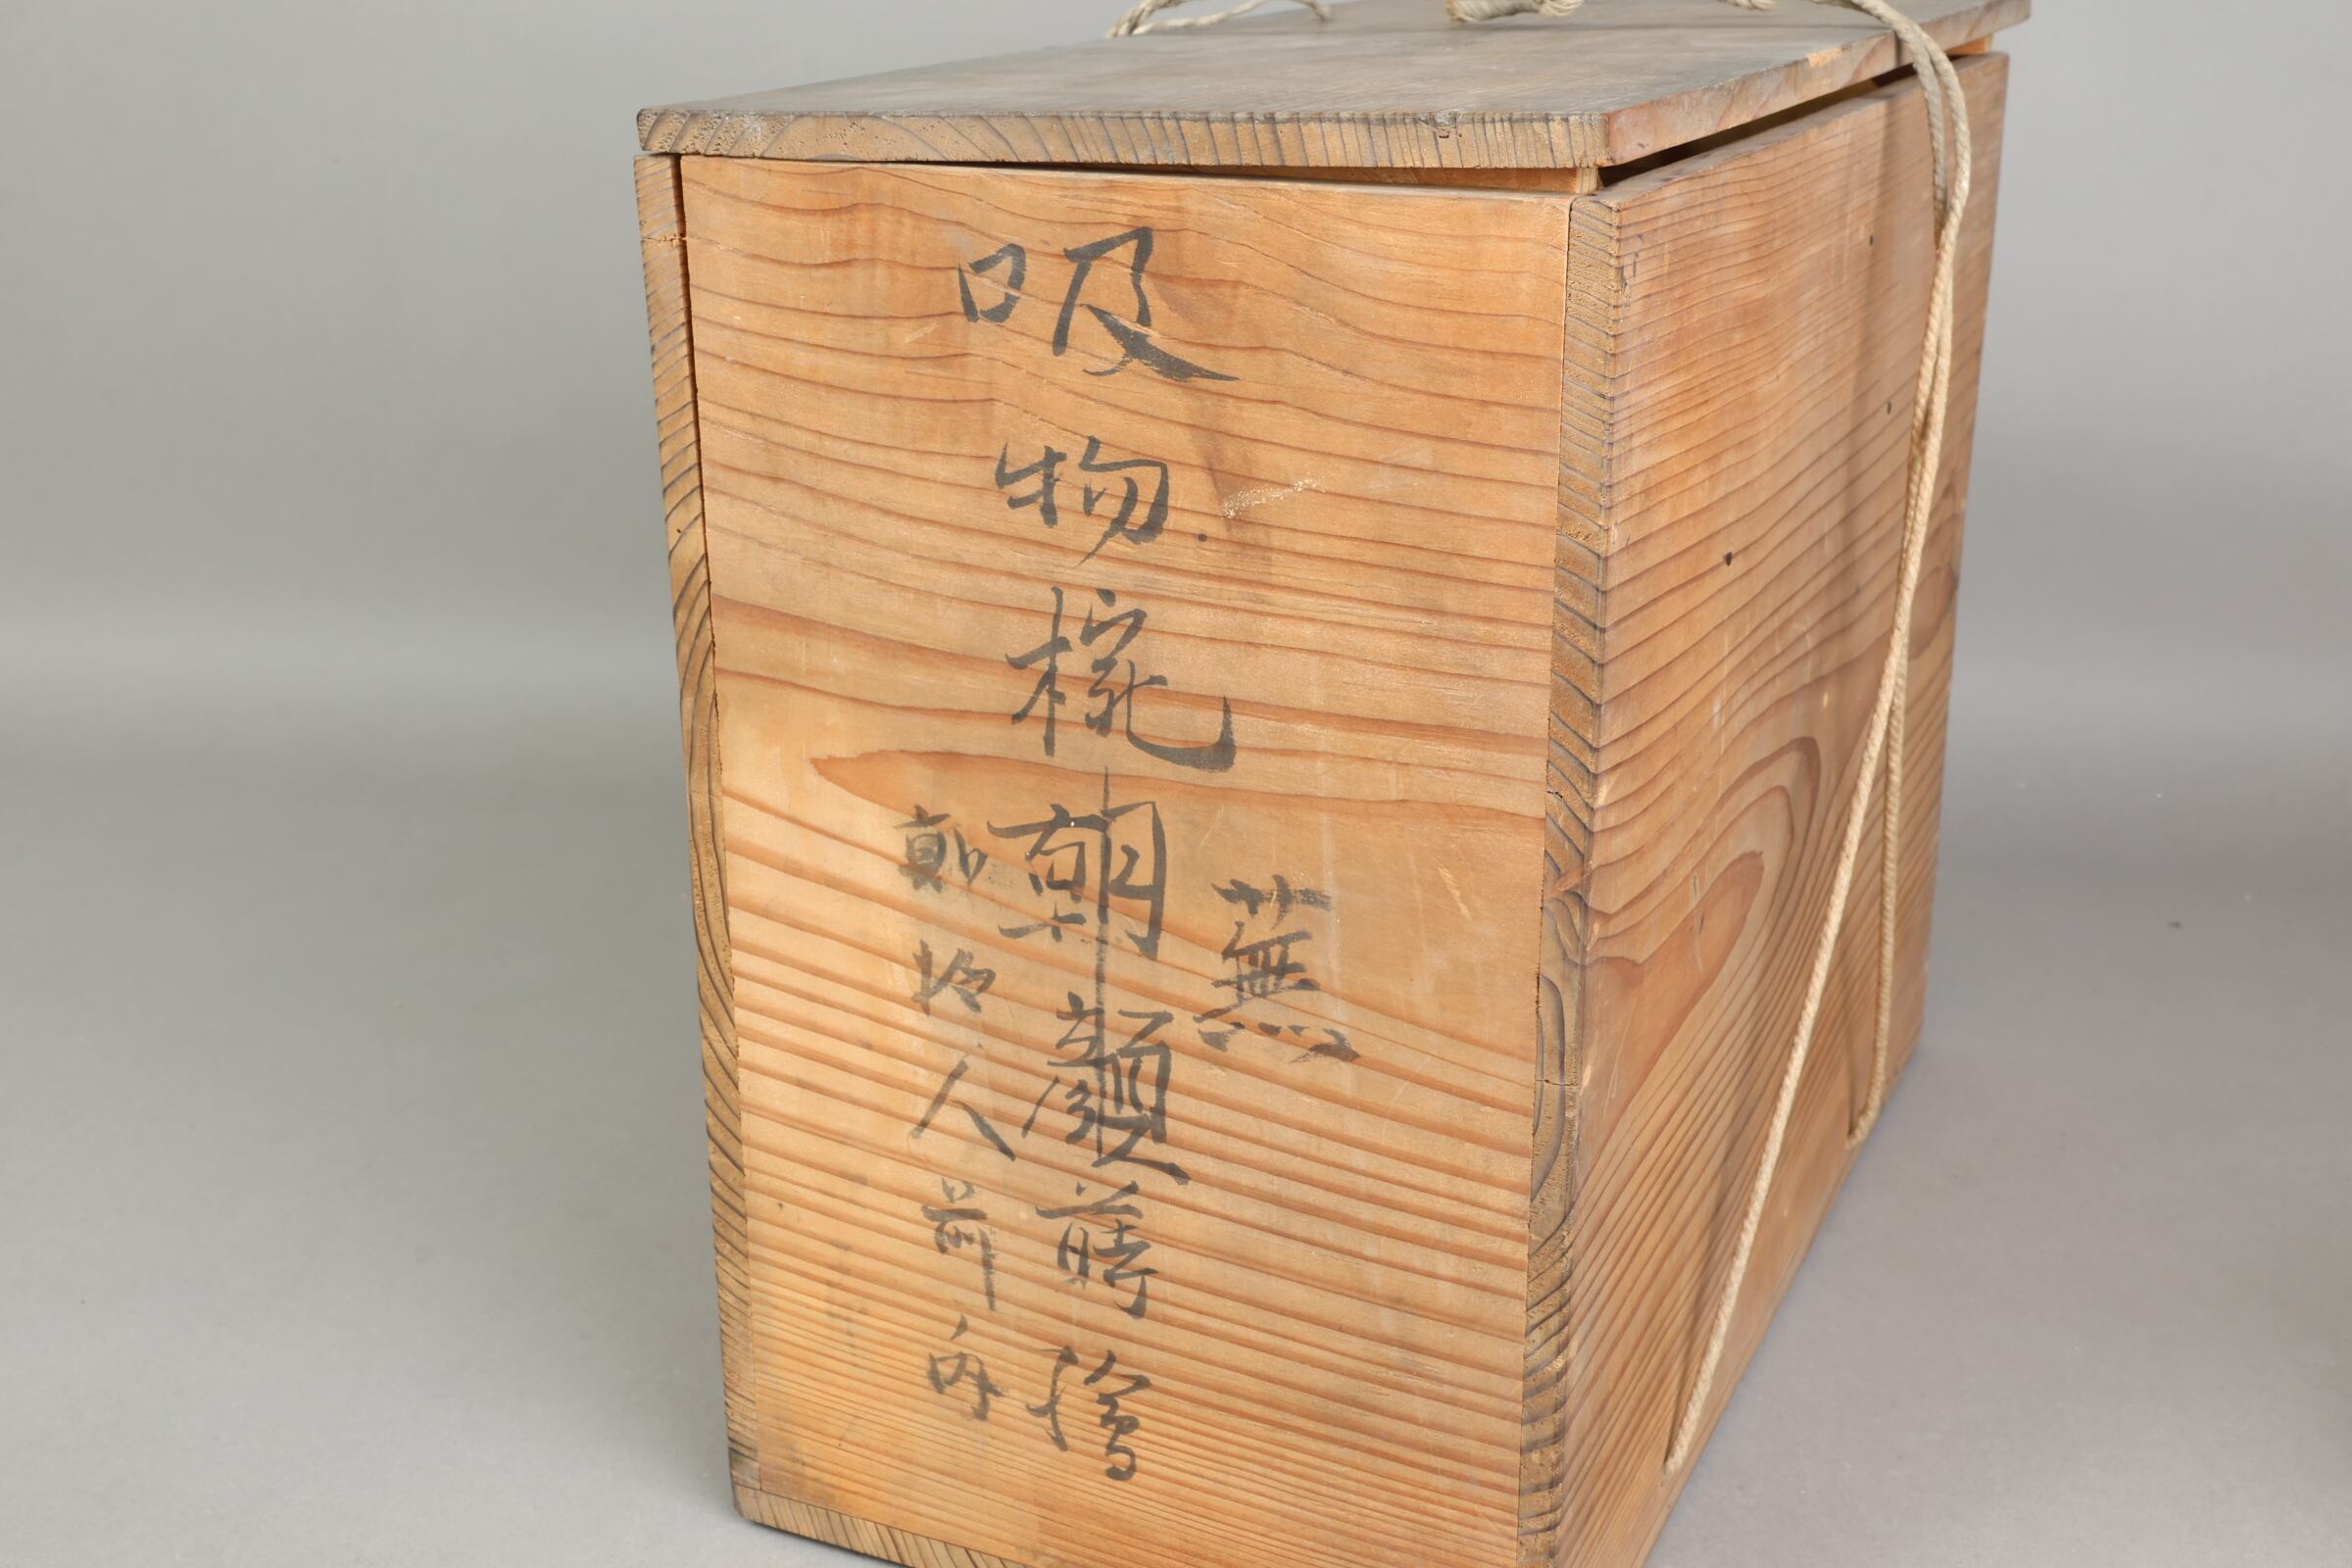 蕪
吸物椀朝顔蒔絵
拾人前内